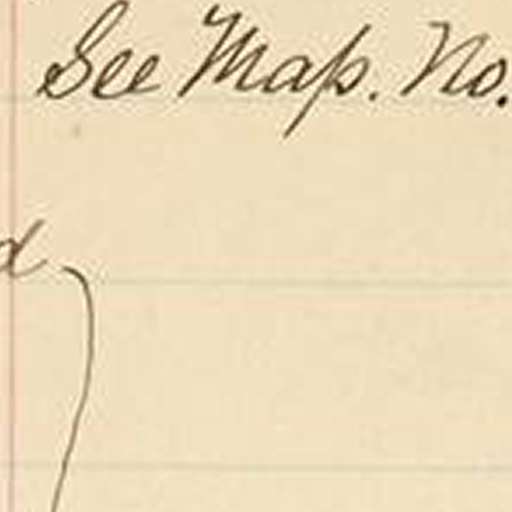 See Map. No.
d